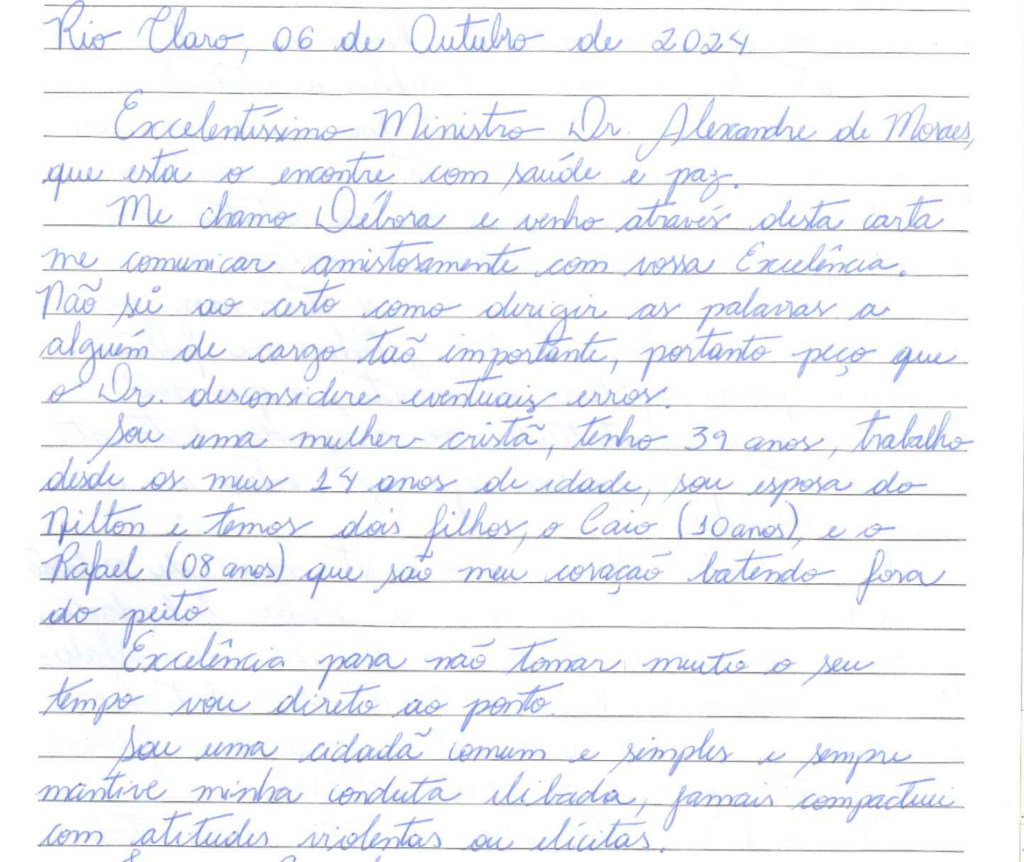 Rio Claro, 06 de Outubro de 2024
Excelentíssimo Ministro Dr. Alexandre de Moraes,
que esta o encontre com saúde e paz.
Me chamo Débora e venho através desta carta
me comunicar amistosamente com vossa Excelência.
Não sei ao certo como dirigir as palavras a
alguém de cargo taõ importante, portanto peço que
o Dr. desconsidere eventuais erros.
Sou uma mulher cristã, tenho 39 anos, trabalho
desde os meus 14 anos de idade, sou esposa do
Nilton e temos dois filhos, o Caio (10 anos), e o
Rafael (08 anos) que são meu coraçaõ batendo fora
do peito
Excelência para não tomar muito o seu
tempo vou direto ao ponto.
Sou uma cidadã comum e simples e sempre
mantive minha conduta ilibada, jamais compactuei
com atitudes violentas ou ilícitas.